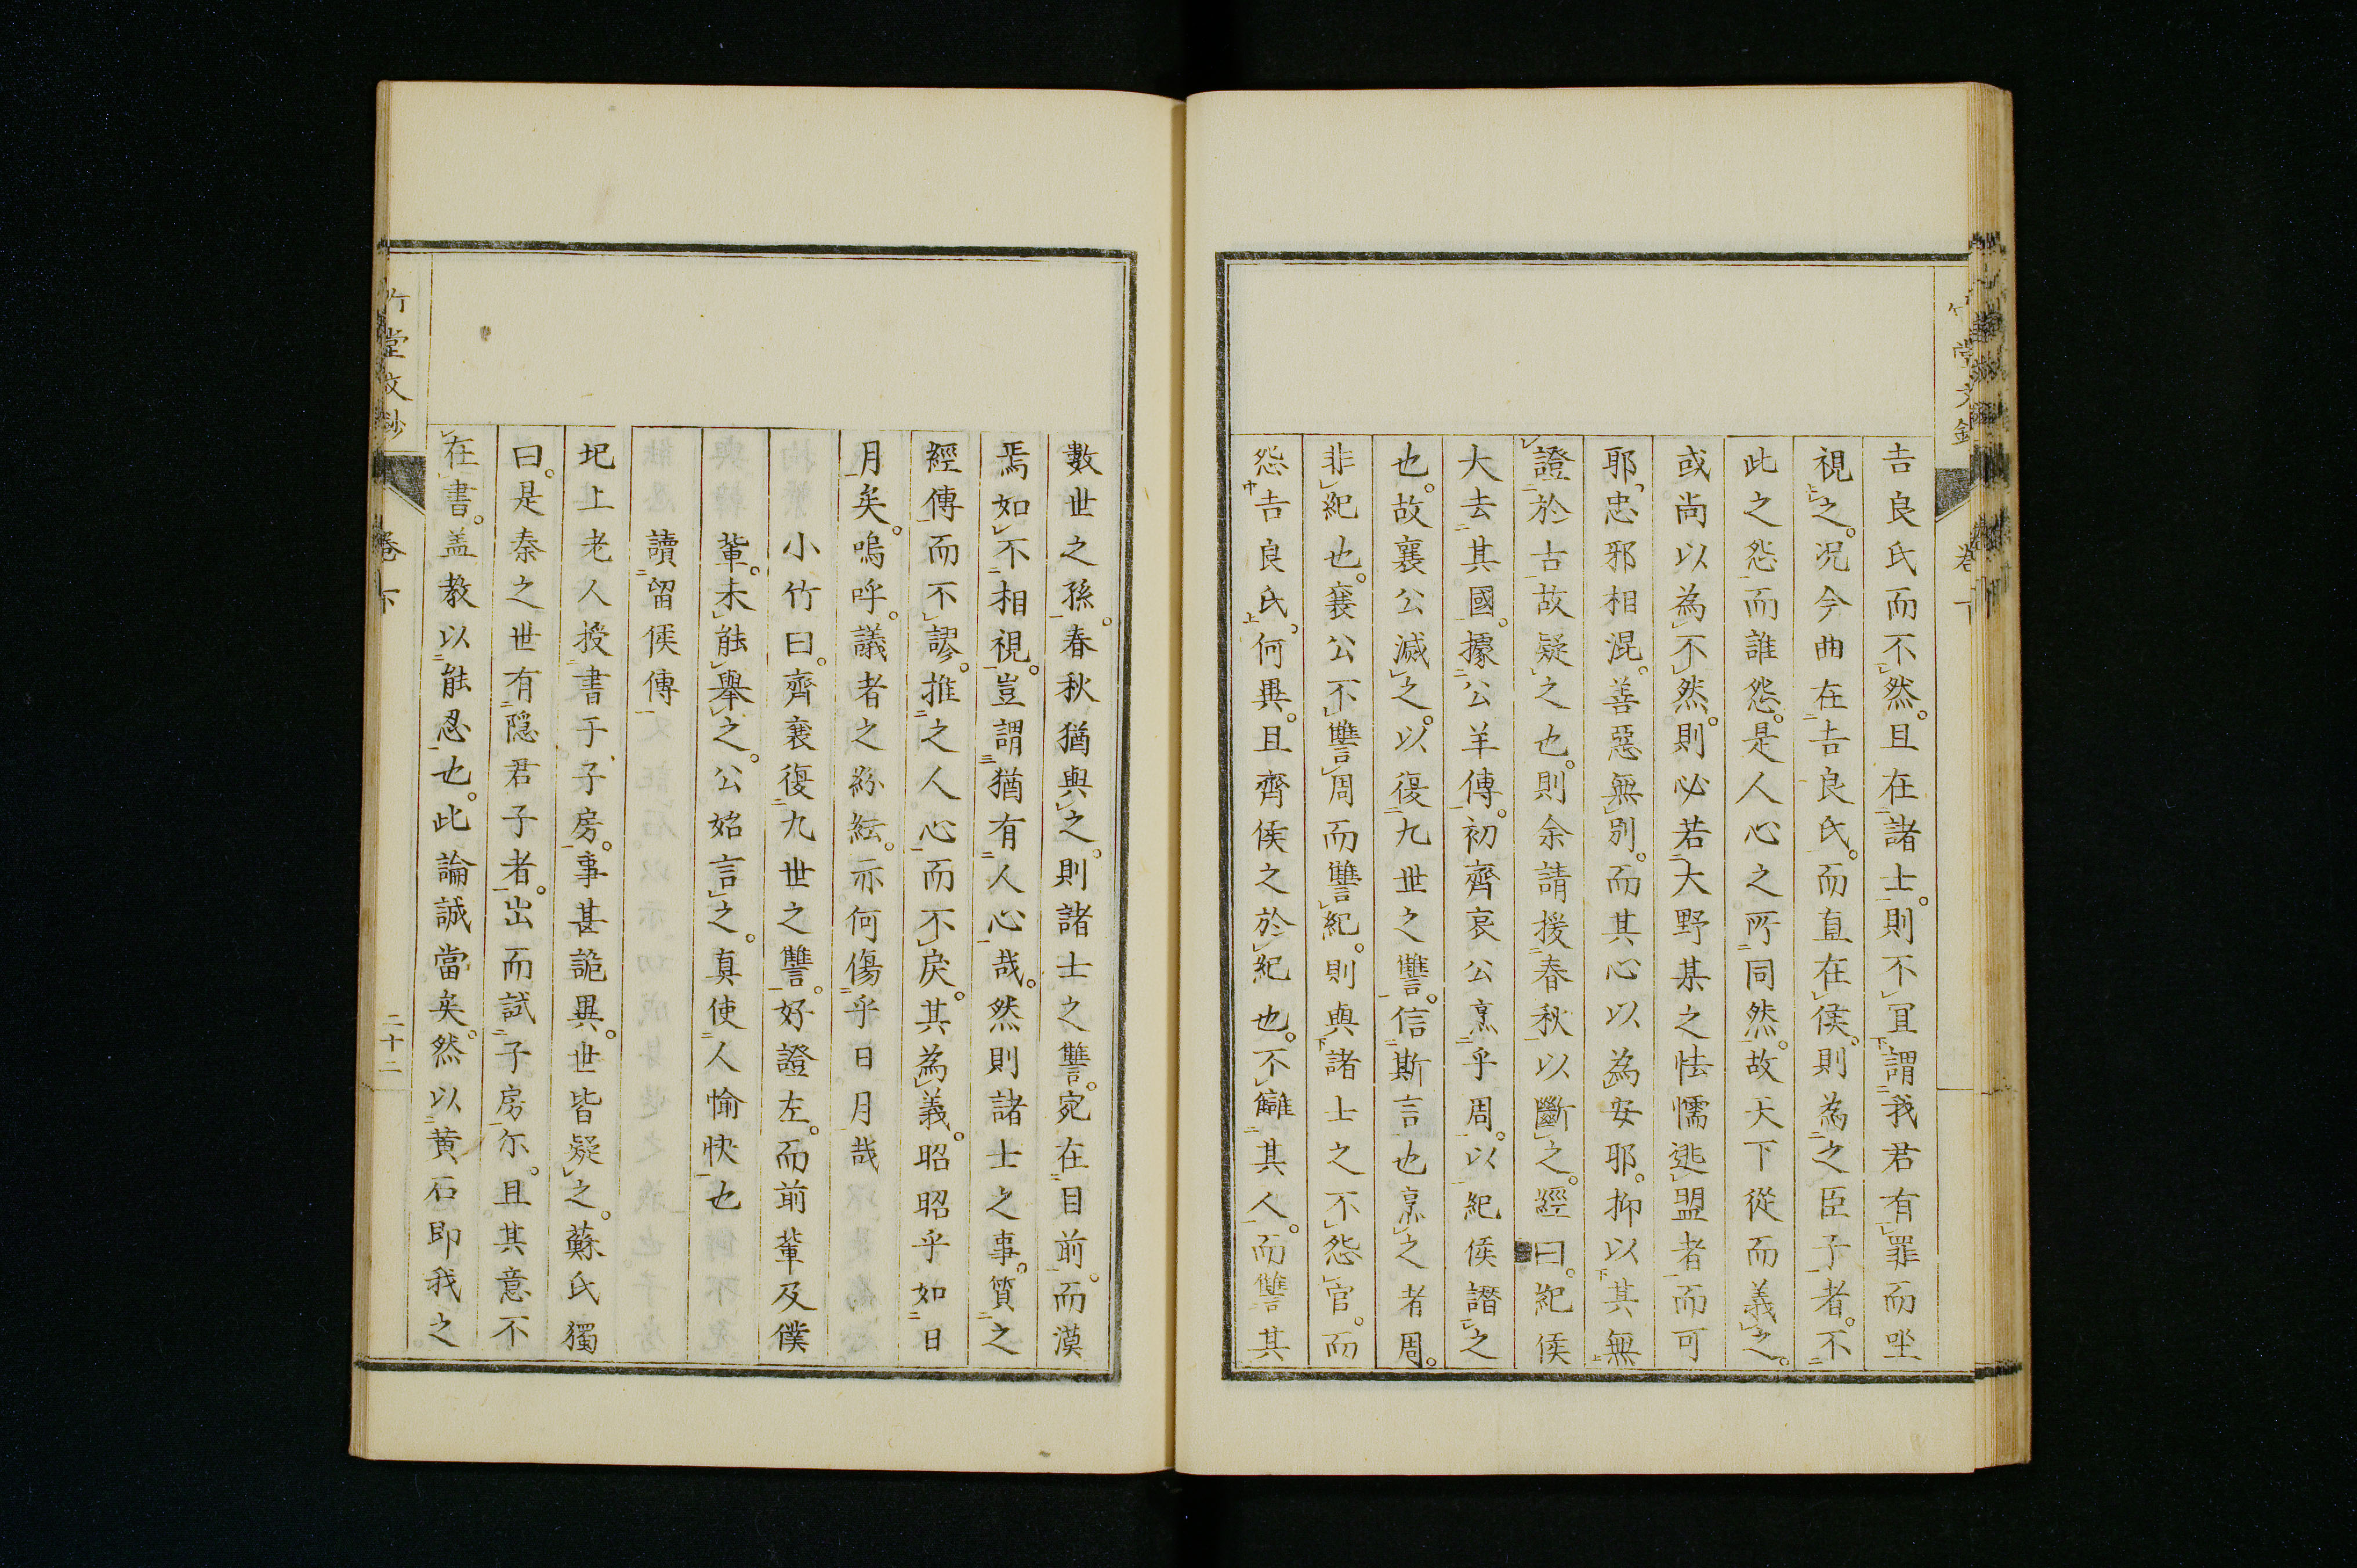 吉良氏而不然。且在諸士。則不宜謂我君有罪而坐
視之。況今曲在吉良氏。而直在侯。則為之臣子者。不
此之怨而誰怨。是人心之所同然。故天下從而義之。
或尚以為不然。則必若大野某之怯懦逃盟者而可
耶。忠邪相混。善惡無別。而其心以為安耶。抑以其無
證於古故疑之也。則余請援春秋以斷之。經曰。紀侯
大去其國。據公羊傳。初齊哀公烹乎周。以紀侯譖之
也。故襄公滅之。以復九世之讐。信斯言也烹之者周。
非紀也。襄公不讐周而讐紀。則與諸士之不怨官。而
怨吉良氏。何異。且齊侯之於紀也。不讎其人。而讐其
數世之孫。春秋猶與之。則諸士之讐。宛在目前。而漠
焉如不相視。豈謂猶有人心哉。然則諸士之事。質之
經傳而不謬。推之人心而不戾。其為義。昭昭乎如日
月矣。嗚呼。議者之紛紜。亦何傷乎日月哉
小竹曰。齊襄復九世之讐。好證左。而前輩及僕
輩。未能舉之。公始言之。真使人愉快也
讀留侯傳
圯上老人授書于子房。事甚詭異。世皆疑之。蘇氏獨
曰。是秦之世有隱君子者。出而試子房尓。且其意不
在書。盖教以能忍也。此論誠當矣。然以黄石即我之
竹堂文鈔
卷下
二十二